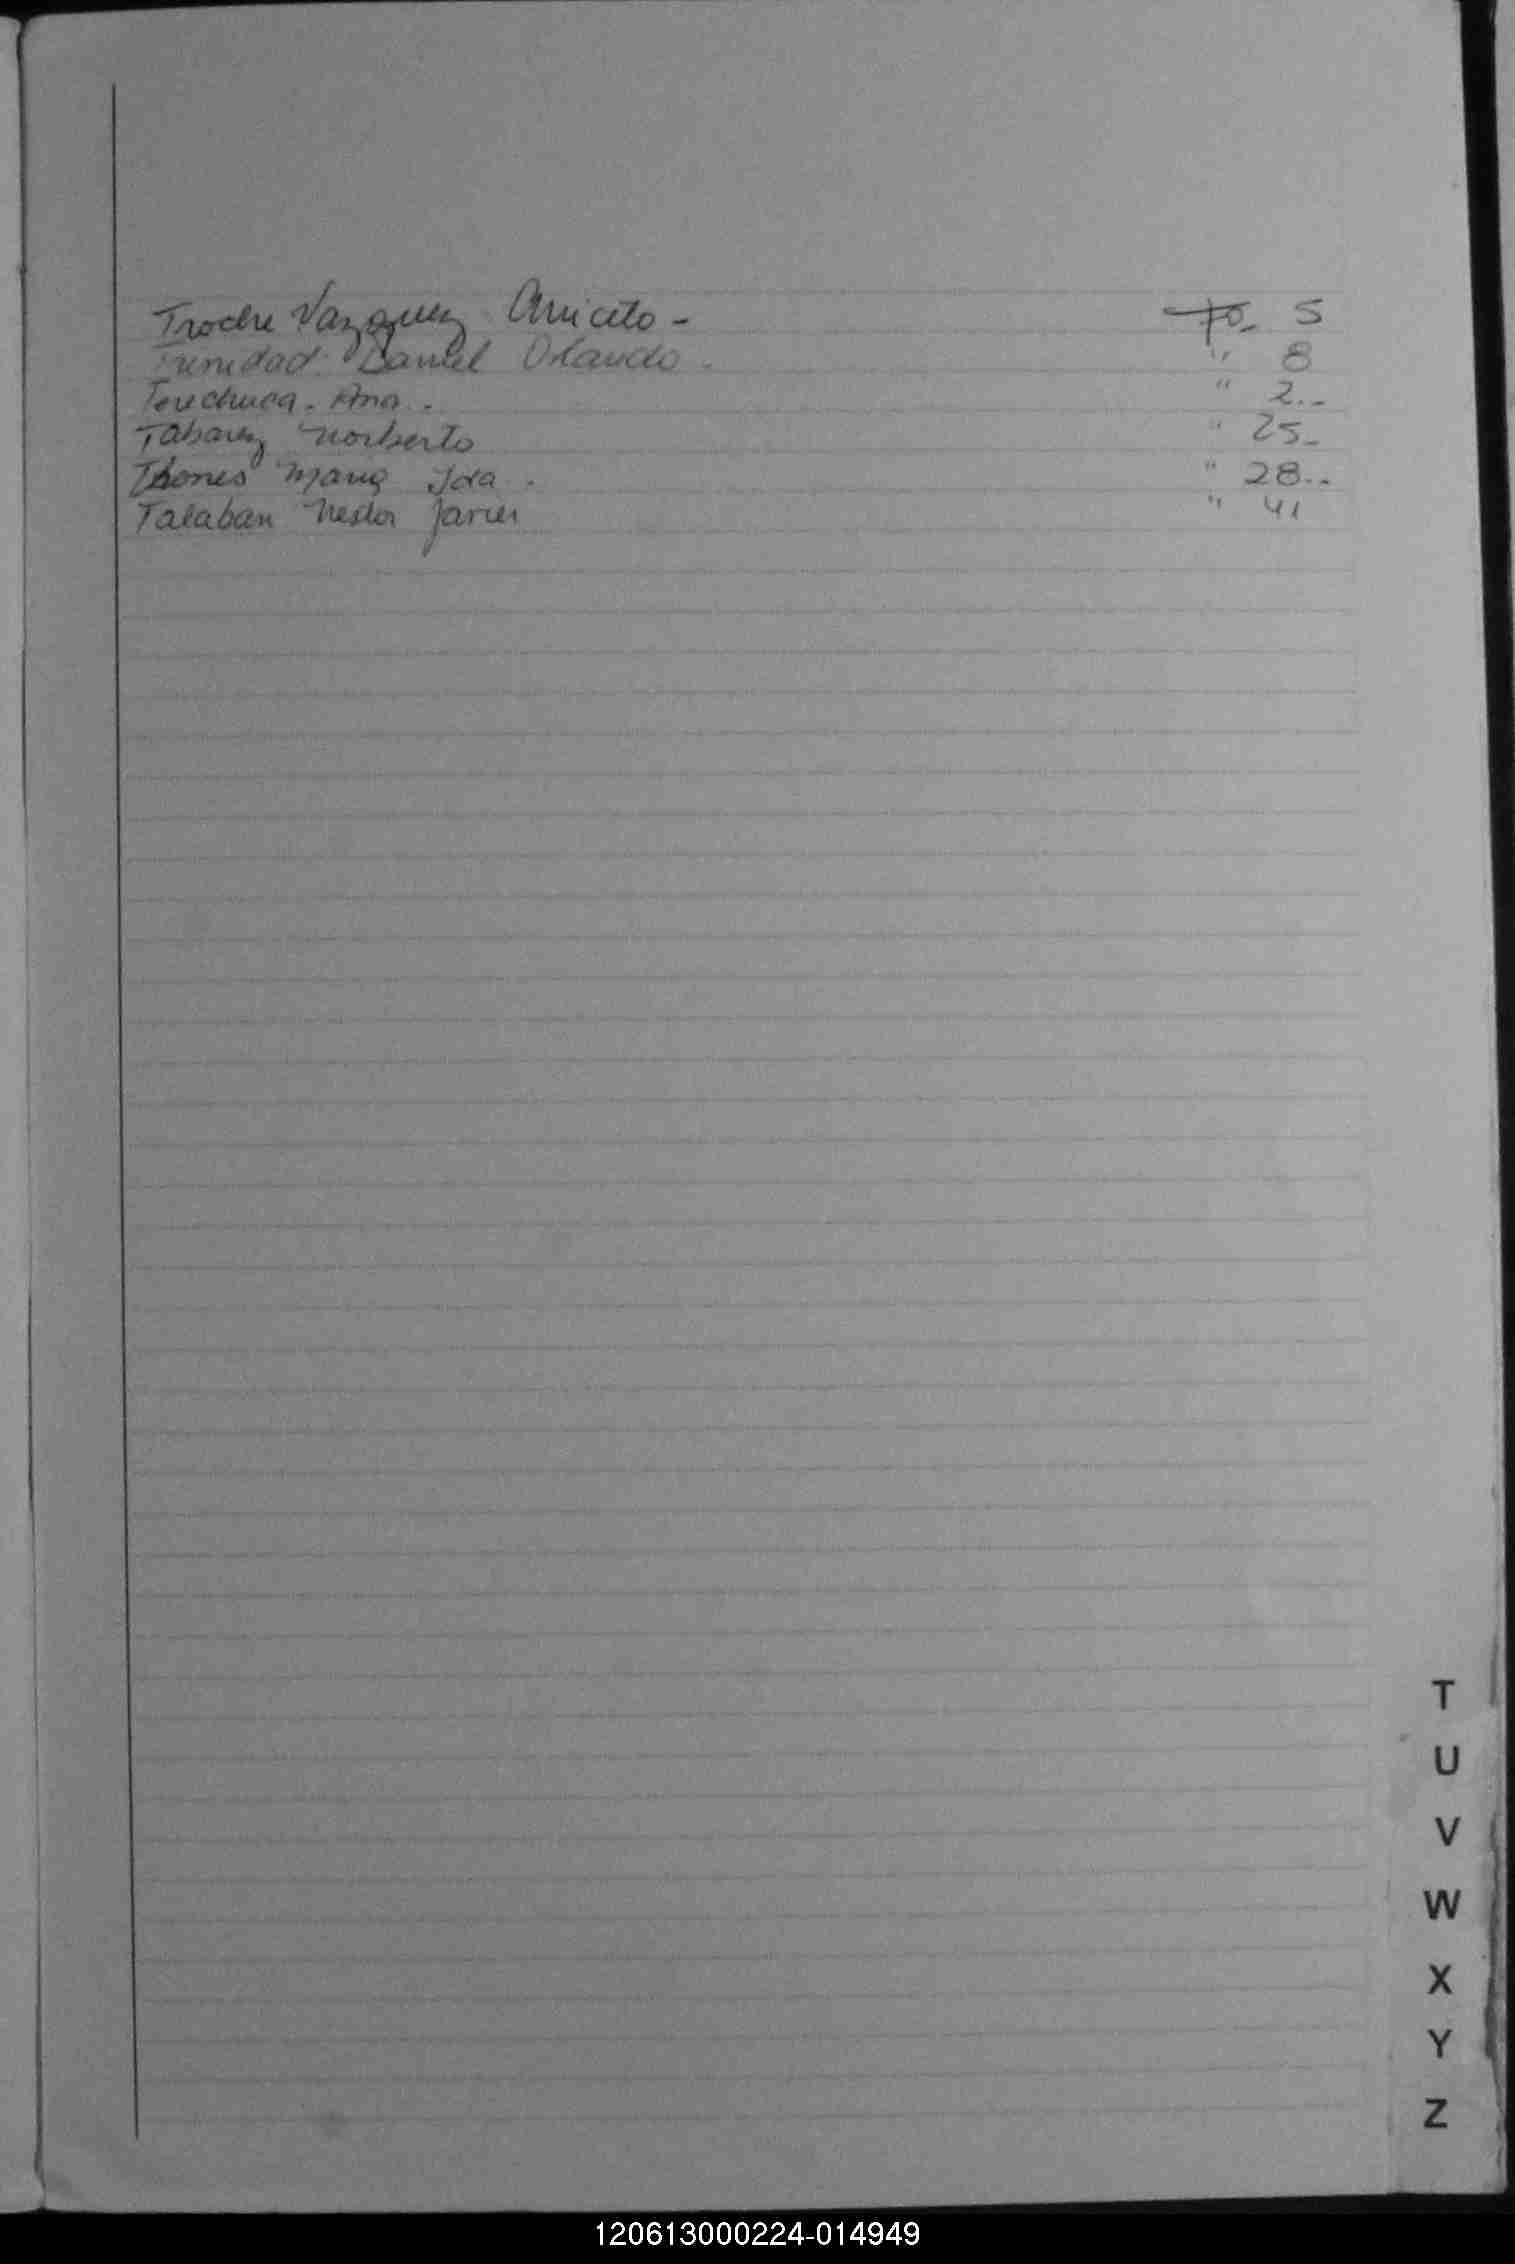 Troche Vazquez Aniceto - Fo. 5
Trinidad Daniel Orlando. " 8
Ana. " 2..
Tabarez Norberto " 25-
Thones Maria Ida. " 28..
Talaban Nestor Javier " 41
T
U
V
W
X
Y
Z
120613000224-014949